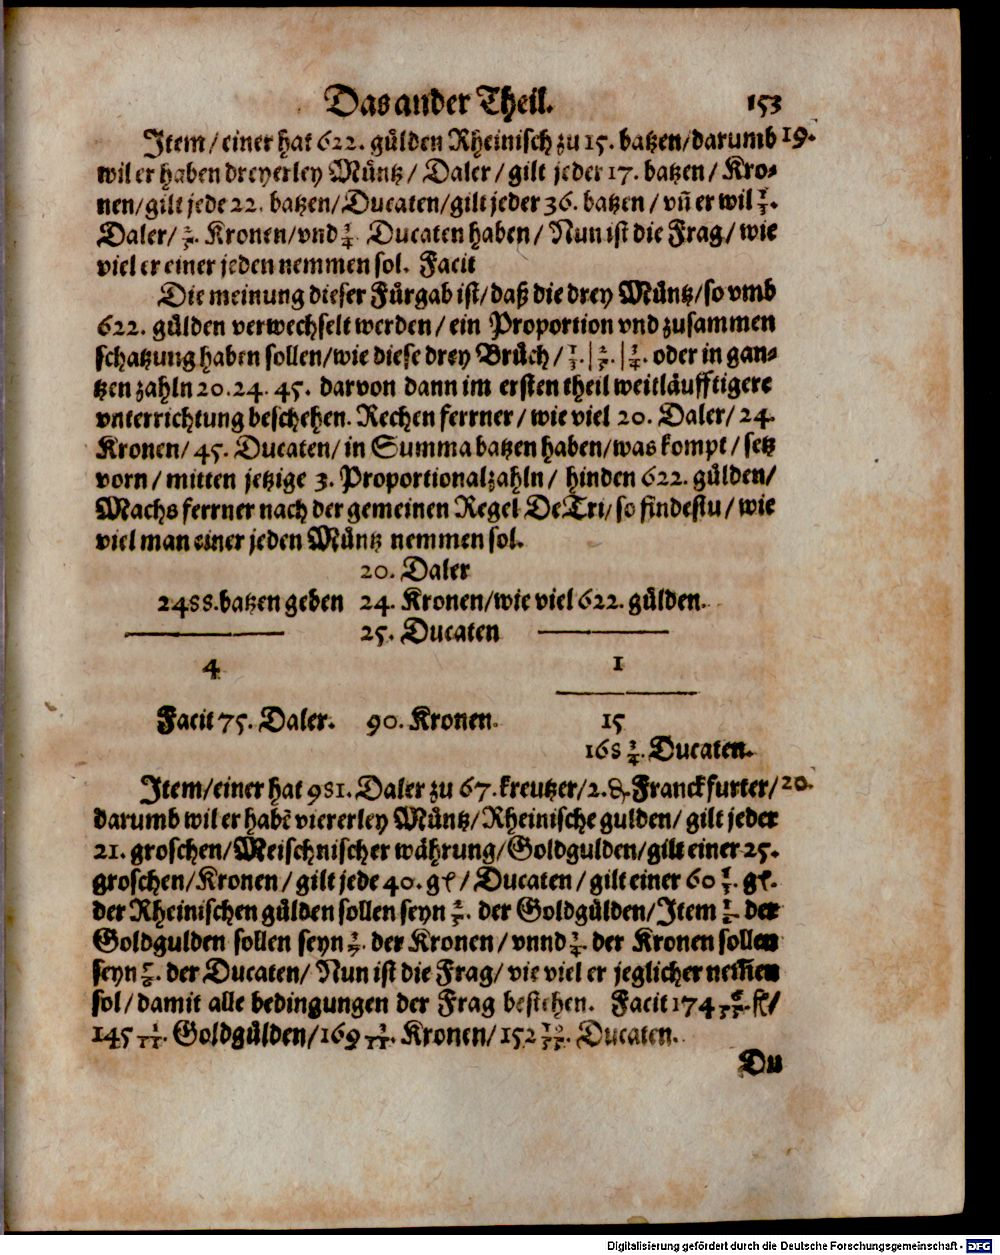 Das ander Theil. 153
Item/einer hat 622. gülden Rheinisch zu 15. batzen/darumb 19.
wil er haben dreyerley Müntz/ Daler/ gilt jeder 17. batzen/ Kro-
nen/gilt jede 22. batzen/Ducaten/gilt jeder 36. batzen/ vñ er wil 1/3.
Daler/ 2/5. Kronen/vnd 3/4 Ducaten haben/ Nun ist die Frag/ wie
viel er einer jeden nemmen sol. Facit
Die meinung dieser Fürgab ist/daß die drey Müntz/so vmb
622. gülden verwechselt werden/ ein Proportion vnd zusammen
schatzung haben sollen/wie diese drey Brüch/ 1/3.|2/5.|3/4. oder in gan-
tzen zahln 20.24. 45. darvon dann im ersten theil weitläufftigere
vnterrichtung beschehen. Rechen ferrner/ wie viel 20. Daler/ 24.
Kronen/ 45. Ducaten/ in Summa batzen haben/was kompt/ setz
vorn/ mitten jetzige 3. Proportionalzahln/ hinden 622. gülden/
Machs ferrner nach der gemeinen Regel DeTri/ so findestu/ wie
viel man einer jeden Müntz nemmen sol.
20. Daler
2488.batzen geben 24. Kronen/wie viel 622. gülden.
25. Ducaten
4 1
Facit 75. Daler. 90. Kronen. 15
168 3/4. Ducaten.
Item/einer hat 981. Daler zu 67.kreutzer/2.₰.Franckfurter/ 20.
darumb wil er habē viererley Müntz/Rheinische gulden/ gilt jeder
21. groschen/Meischnischer währung/Goldgulden/gilt einer 25.
groschen/Kronen/ gilt jede 40. gl/ Ducaten/ gilt einer 60 . gl.
der Rheinischen gülden sollen seyn . der Goldgülden/Item . der
Goldgulden sollen seyn . der Kronen/ vnnd . der Kronen sollen
seyn . der Ducaten/ Nun ist die Frag/ vie viel er jeglicher nem̃en
sol/ damit alle bedingungen der Frag bestehen. Facit 174 6/11. fl/
145 5/11. Goldgülden/169 . Kronen/ 152 . Ducaten.
Du
Digitalisierung gefördert durch die Deutsche Forschungsgemeinschaft - DFG